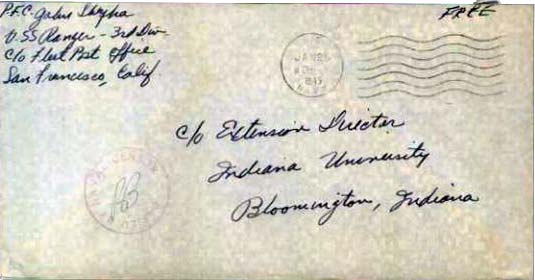 P.F.C. John
U.S.S Ranger - 3rd Div
C/o Fleet Post Office
San Francisco, Calif.
FREE
JAN 25
1945
C/o Extension Director
Indiana University
Bloomington, Indiana